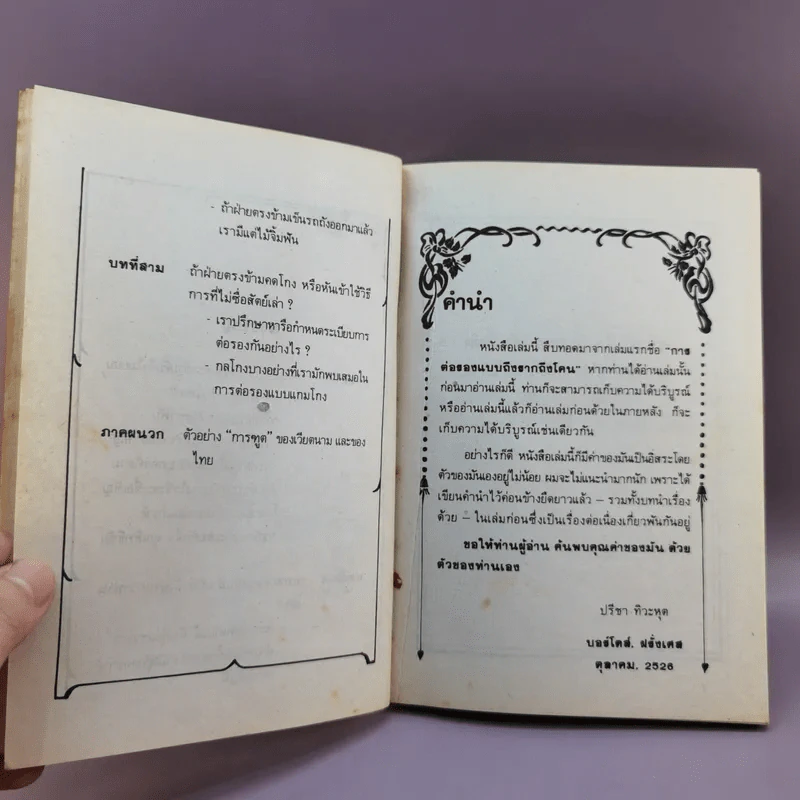 - ถ้าฝ่ายตรงข้ามเข็นรถถังออกมาแล้ว
เรามีแต่ไม้จิ้มฟัน
บทที่สาม ถ้าฝ่ายตรงข้ามคดโกง หรือหันเข้าใช้วิธี
การที่ไม่ซื่อสัตย์เล่า ?
- เราปรึกษาหารือกำหนดระเบียบการ
ต่อรองกันอย่างไร ?
- กลโกงบางอย่างที่เรามักพบเสมอใน
การต่อรองแบบแกมโกง
ภาคผนวก ตัวอย่าง "การฑูต" ของเวียดนาม และของ
ไทย
คำนำ
หนังสือเล่มนี้ สืบทอดมาจากเล่มแรกชื่อ "การ
ต่อรองแบบถึงรากถึงโคน" หากท่านได้อ่านเล่มนั้น
ก่อนมาอ่านเล่มนี้ ท่านก็จะสามารถเก็บความได้บริบูรณ์
หรืออ่านเล่มนี้แล้วก็อ่านเล่มก่อนด้วยในภายหลัง ก็จะ
เก็บความได้บริบูรณ์เช่นเดียวกัน
อย่างไรก็ดี หนังสือเล่มนี้ก็มีค่าของมันเป็นอิสระโดย
ตัวของมันเองอยู่ไม่น้อย ผมจะไม่แนะนำมากนัก เพราะได้
เขียนคำนำไว้ค่อนข้างยืดยาวแล้ว – รวมทั้งบทนำเรื่อง
ด้วย – ในเล่มก่อนซึ่งเป็นเรื่องต่อเนื่องเกี่ยวพันกันอยู่
ขอให้ท่านผู้อ่าน ค้นพบคุณค่าของมัน ด้วย
ตัวของท่านเอง
ปรีชา ทิวะหุต
บอร์โดส์, ฝรั่งเศส
ตุลาคม, 2526